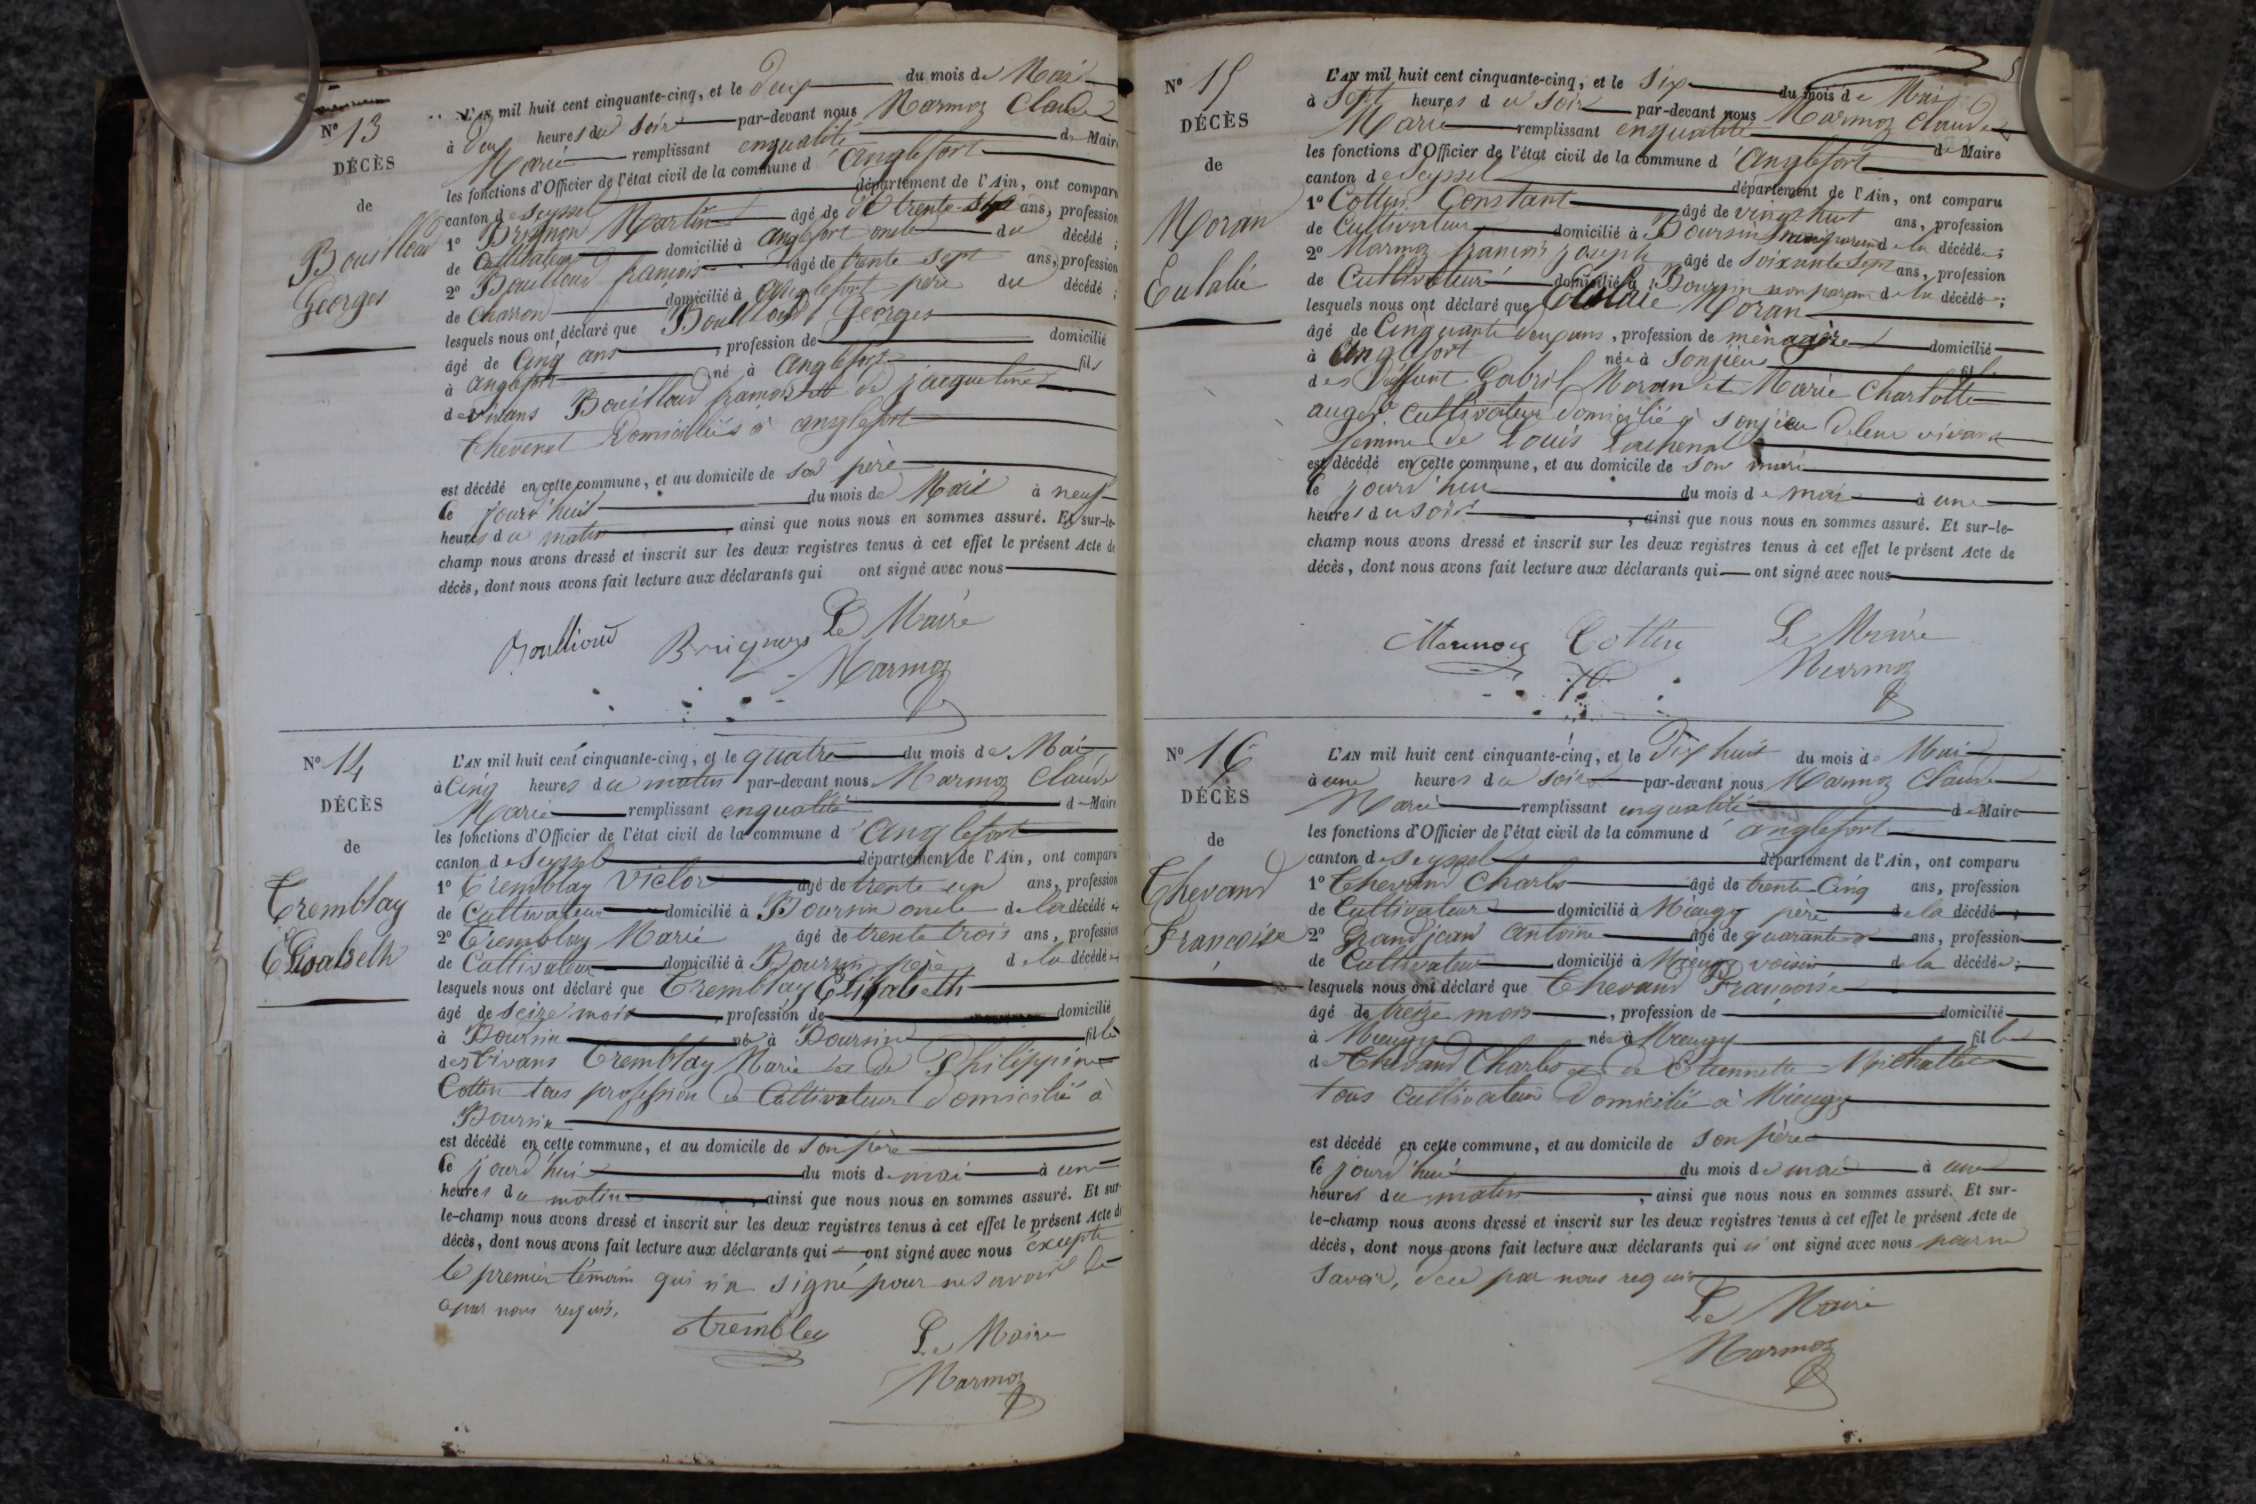 N° 13
DÉCÈS
de
Bouilloud
Georges
L'AN mil huit cent cinquante-cinq, et le deux du mois de Mai
à deux heures du soir par-devant nous Marmoz Claude
Marie remplissant enqualité de Maire
les fonctions d'Officier de l'état civil de la commune d'anglefort
canton de Seyssel département de l'Ain, ont comparu
1° Martin âgé de trente ans, profession
de Cultivateur domicilié à anglefort oncle du décédé ;
2° Bouilloud francois âgé de trente sept ans, profession
de Charron domicilié à anglefort père du décédé ;
lesquels nous ont déclaré que Bouilloud Georges
âgé de Cinq ans , profession de domicilié
à anglefort né à anglefort fils
de vivans Bouilloud francois et de jacqueline
Chevenet Domiciliés à anglefort
est décédé en cette commune, et au domicile de son père
le jourd'hui du mois de Mai à neuf
heures du matin , ainsi que nous nous en sommes assuré. Et sur-le-
champ nous avons dressé et inscrit sur les deux registres tenus à cet effet le présent Acte de
décès, dont nous avons fait lecture aux déclarants qui ont signé avec nous
Bouilloud Le Maire
Marmoz
N° 14
DÉCÈS
de
Tremblay
Elisabeth
L'AN mil huit cent cinquante-cinq, et le quatre du mois de Mai
à Cinq heures du matin par-devant nous Marmoz Claude
Marie remplissant enqualité de Maire
les fonctions d'Officier de l'état civil de la commune d'anglefort
canton de Seyssel département de l'Ain, ont comparu
1° Tremblay Victor âgé de trente un ans, profession
de Cultivateur domicilié à Boursin oncle de la décédée
2° Tremblay Marie âgé de trente trois ans, profession
de Cultivateur domicilié à Boursin père de la décédée
lesquels nous ont déclaré que Tremblay Elisabeth
âgé de seize mois , profession de domicilié
à Boursin né à Boursin fille
des Vivans Tremblay Marie et de Philippine
Cottin tous profession de Cultivateur Domicilié à
Boursin
est décédé en cette commune, et au domicile de son père
le jourd'hui du mois de mai à une
heures du matin , ainsi que nous nous en sommes assuré. Et sur-
le-champ nous avons dressé et inscrit sur les deux registres tenus à cet effet le présent Acte de
décès, dont nous avons fait lecture aux déclarants qui ont signé avec nous excepté
le premier témoin qui n'a signé pour ne savoir de
a par nous requis.
tremblay Le Maire
Marmoz
N° 15
DÉCÈS
de
Moran
Eulalie
L'AN mil huit cent cinquante-cinq, et le six du mois de Mai
à Sept heures du soir par-devant nous Marmoz Claude
Marie remplissant enqualité de Maire
les fonctions d'Officier de l'état civil de la commune d'anglefort
canton de Seyssel département de l'Ain, ont comparu
1° Cottin Constant âgé de vingt huit ans, profession
de Cultivateur domicilié à Boursin non parend de la décédée ;
2° Marmoz francois joseph âgé de soixante sept ans, profession
de Cultivateur domicilié à Boursin non parend de la décédée ;
lesquels nous ont déclaré que Eulalie Moran
âgé de Cinquante deux ans, profession de ménagère domicilié
à anglefort née à Sonjieu fille
des Deffunt Gabriel Moran et Marie Charlotte
auger cultivateur domicilié à Sonjieu de leur vivant
femme de Louis Lachenal
est décédé en cette commune, et au domicile de son mari
le jourd'hui du mois de mai à une
heures du soir , ainsi que nous nous en sommes assuré. Et sur-le-
champ nous avons dressé et inscrit sur les deux registres tenus à cet effet le présent Acte de
décès, dont nous avons fait lecture aux déclarants qui ont signé avec nous
Marmoz Cottin Le Maire
Marmoz
N° 16
DÉCÈS
de
Chevand
Françoise
L'AN mil huit cent cinquante-cinq, et le Dix huit du mois de Mai
à une heures du soir par-devant nous Marmoz Claude
Marie remplissant enqualité de Maire
les fonctions d'Officier de l'état civil de la commune d'anglefort
canton de Seyssel département de l'Ain, ont comparu
1° Chevand Charles âgé de trente Cinq ans, profession
de Cultivateur domicilié à Mieugy père de la décédée ;
2° Grandjean Antoine âgé de quarante ans, profession
de Cultivateur domicilié à Mieugy voisin de la décédée ;
lesquels nous ont déclaré que Chevand Françoise
âgé de treize mois , profession de domicilié
à Mieugy née à Mieugy fille
de Chevand Charles et de Etiennette Michallet
tous Cultivateur Domicilié à Mieugy
est décédé en cette commune, et au domicile de son père
le jourd'hui du mois de mai à une
heures du matin , ainsi que nous nous en sommes assuré. Et sur-
le-champ nous avons dressé et inscrit sur les deux registres tenus à cet effet le présent Acte de
décès, dont nous avons fait lecture aux déclarants qui n'ont signé avec nous pour ne
savoir, de ce par nous requis
Le Maire
Marmoz